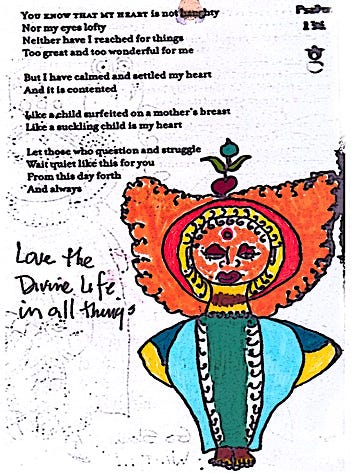 YOU KNOW THAT MY HEART is not haughty
Nor my eyes lofty
Neither have I reached for things
Too great and too wonderful for me
But I have calmed and settled my heart
And it is contented
Like a child surfeited on a mother's breast
Like a suckling child is my heart
Let those who question and struggle
Wait quiet like this for you
From this day forth
And always
Love the
Divine Life
in all things